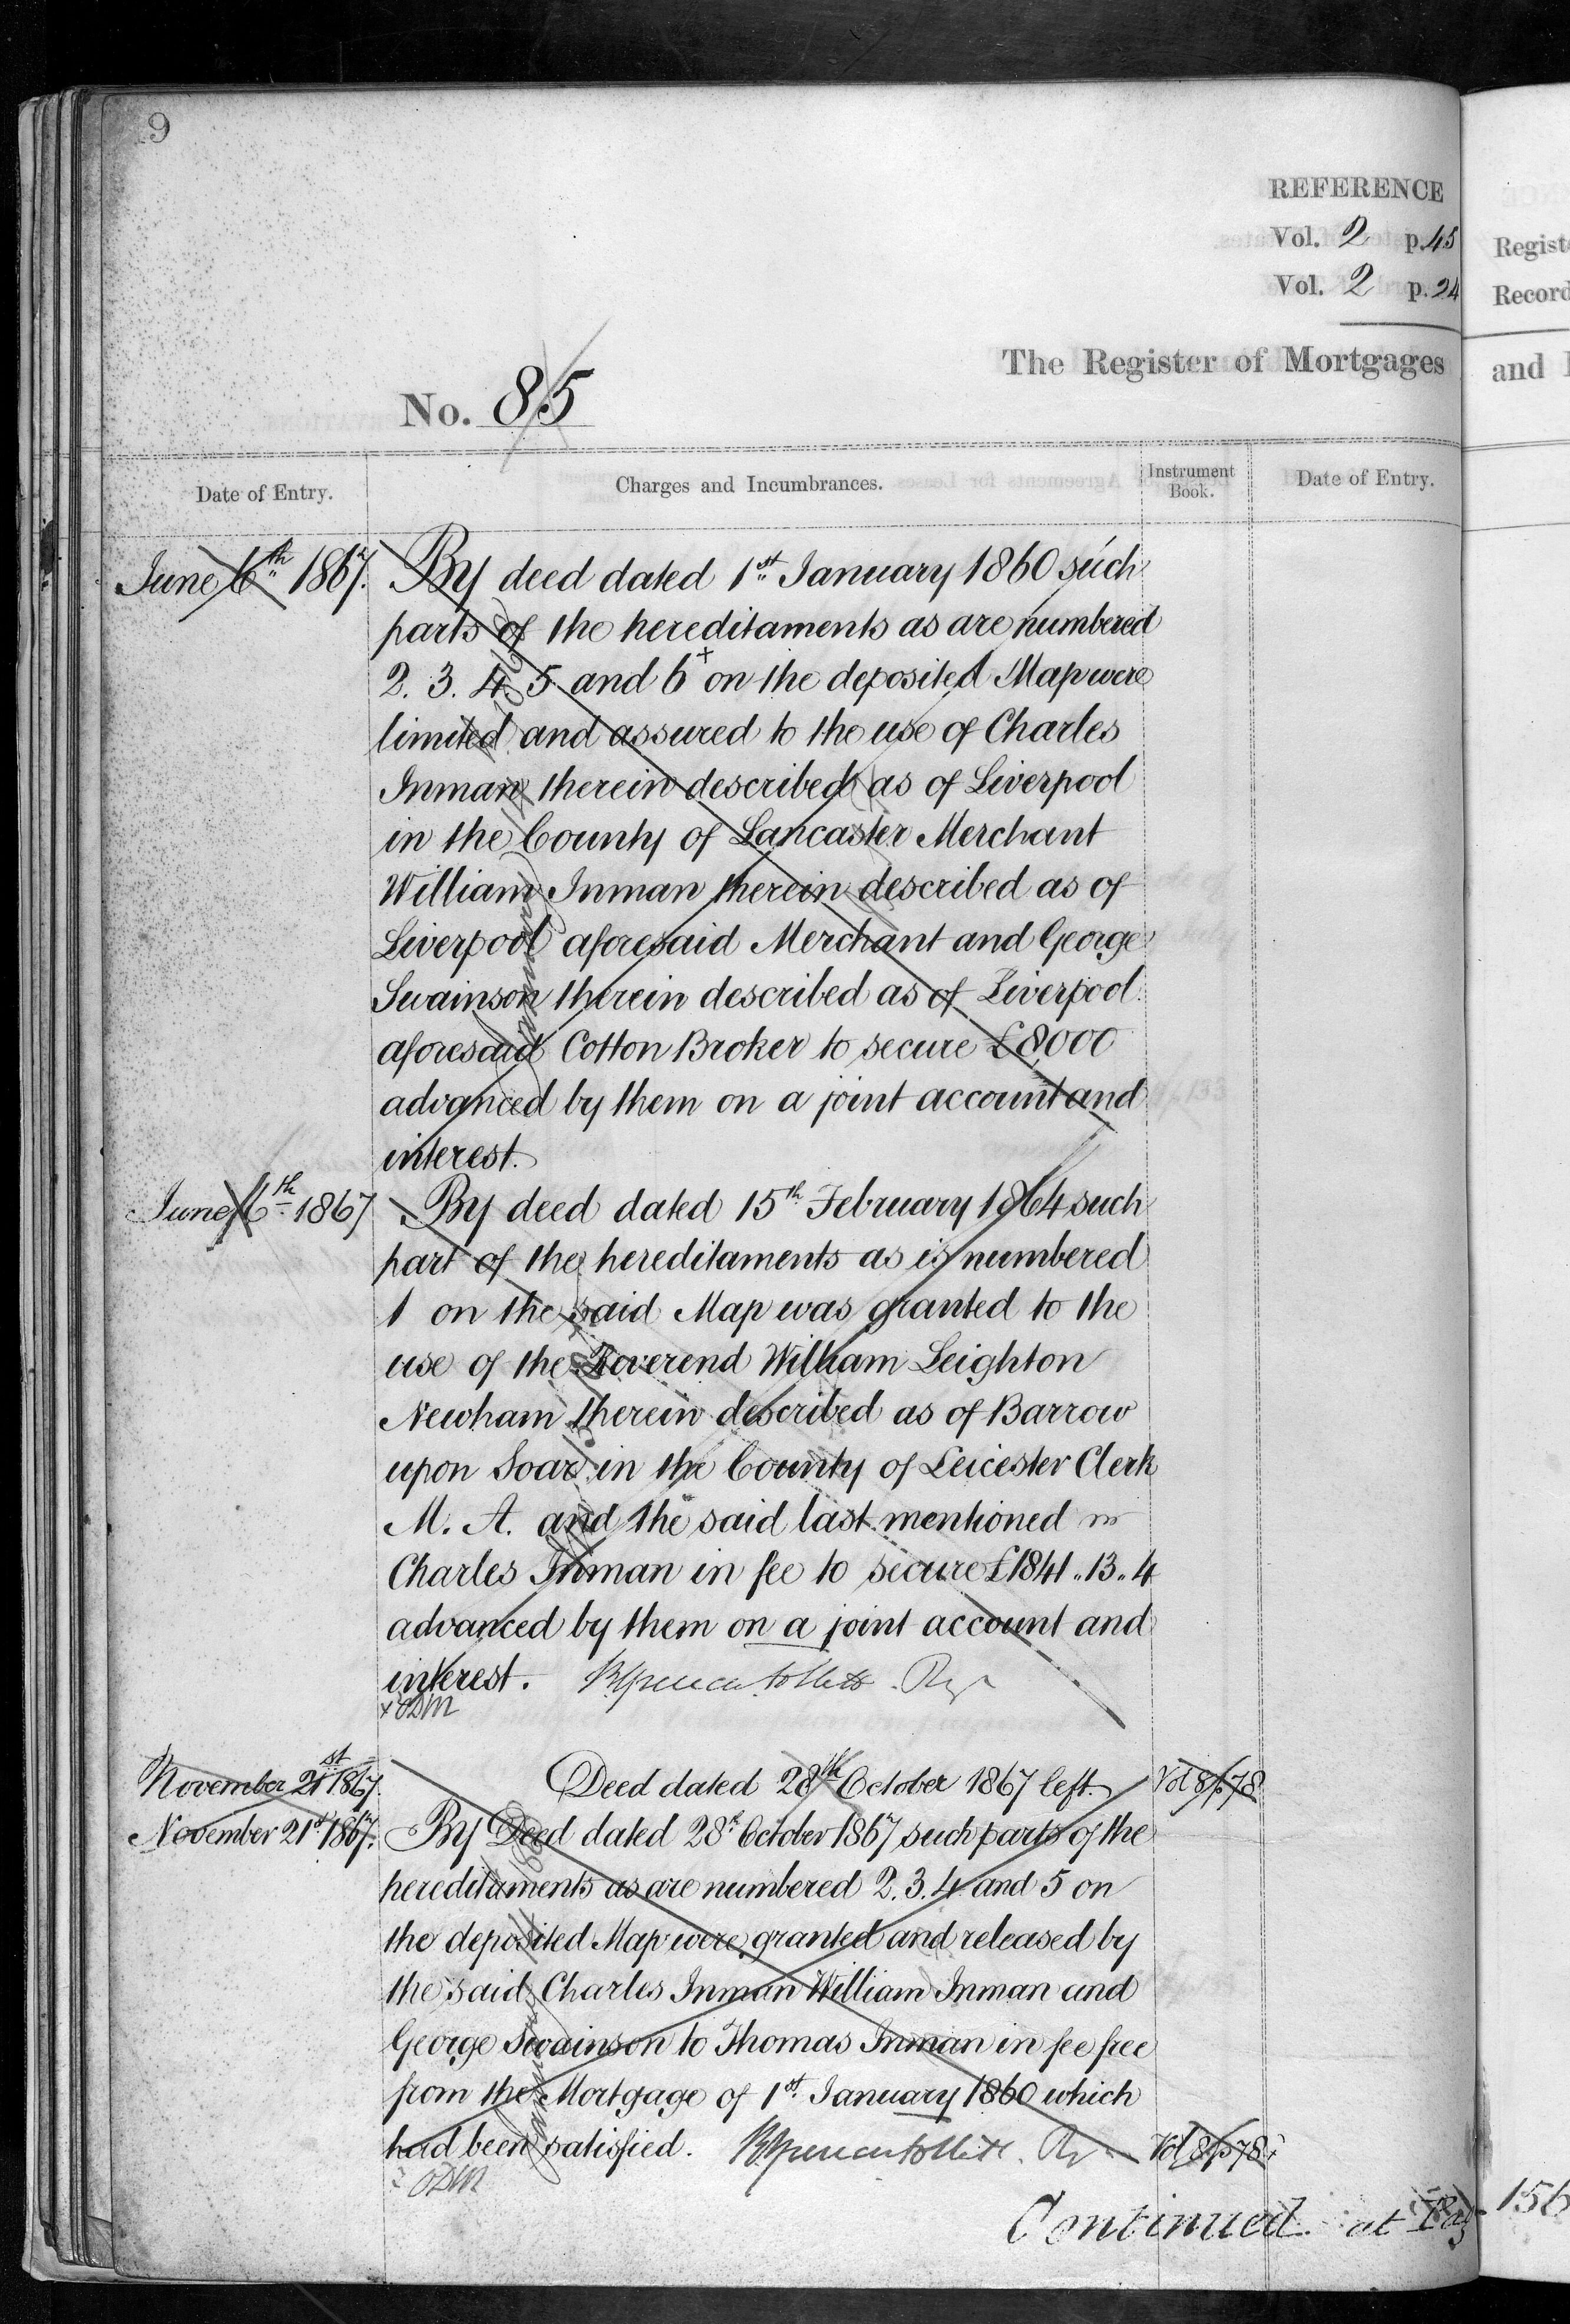 9
REFERENCE
Vol. 2 p. 45
Vol. 2 p. 24
The Register of Mortgages
No. 85
Date of Entry.
Charges and Incumbrances.
Instrument Book.
Date of Entry.
June 6th 1867. By deed dated 1st January 1860 such
parts of the hereditaments as are numbered
2. 3. 4. 5 and 6+ on the deposited Map were
limited and assured to the use of Charles
Inman therein described as of Liverpool
in the County of Lancaster Merchant
William Inman therein described as of
Liverpool aforesaid Merchant and George
Swainson therein described as of Liverpool
aforesaid Cotton Broker to secure £8,000
advanced by them on a joint account and
interest.
June 6th 1867 By deed dated 15th February 1864 such
part of the hereditaments as is numbered
1 on the said Map was granted to the
use of the Reverend William Leighton
Newham therein described as of Barrow
upon Soar in the County of Leicester Clerk
M. A. and the said last mentioned
Charles Inman in fee to secure £1841..13..4
advanced by them on a joint account and
interest.
November 21st 1867. Deed dated 28th October 1867 left. Vol 8/p78
November 21st 1867. By Deed dated 28th October 1867 such parts of the
hereditaments as are numbered 2. 3. 4 and 5 on
the deposited Map were granted and released by
the said Charles Inman William Inman and
George Swainson to Thomas Inman in fee free
from the Mortgage of 1st January 1860 which
had been satisfied. Vol 8/p78
Continued at Pag 156
Regist
Record
and